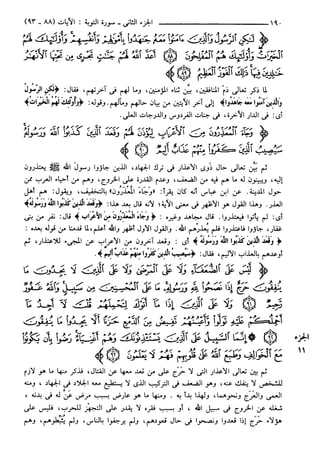 ١٩٠ الجزء الثاني - سورة التوبة : الآيات (٨٨ - ٩٣)
لَٰكِنِ الرَّسُولُ وَالَّذِينَ آمَنُوا مَعَهُ جَاهَدُوا بِأَمْوَالِهِمْ وَأَنفُسِهِمْ وَأُولَٰئِكَ لَهُمُ
الْخَيْرَاتُ وَأُولَٰئِكَ هُمُ الْمُفْلِحُونَ ﴿٨٨﴾ أَعَدَّ اللَّهُ لَهُمْ جَنَّاتٍ تَجْرِي مِن تَحْتِهَا الْأَنْهَارُ
خَالِدِينَ فِيهَا ذَٰلِكَ الْفَوْزُ الْعَظِيمُ ﴿٨٩﴾
لما ذكر تعالى ذمّ المنافقين، بيَّن ثناء المؤمنين، وما لهم في آخرتهم، فقال: ﴿لَٰكِنِ الرَّسُولُ
وَالَّذِينَ آمَنُوا مَعَهُ جَاهَدُوا﴾ إلى آخر الآيتين من بيان حالهم ومآلهم. وقوله: ﴿وَأُولَٰئِكَ لَهُمُ الْخَيْرَاتُ﴾
أي: في الدار الآخرة، في جنات الفردوس والدرجات العلى.
وَجَاءَ الْمُعَذِّرُونَ مِنَ الْأَعْرَابِ لِيُؤْذَنَ لَهُمْ وَقَعَدَ الَّذِينَ كَذَبُوا اللَّهَ وَرَسُولَهُ
سَيُصِيبُ الَّذِينَ كَفَرُوا مِنْهُمْ عَذَابٌ أَلِيمٌ ﴿٩٠﴾
ثم بيّن تعالى حال ذوي الأعذار في ترك الجهاد، الذين جاؤوا رسول الله ﷺ يعتذرون
إليه، ويبينون له ما هم فيه من الضعف، وعدم القدرة على الخروج، وهم من أحياء العرب ممن
حول المدينة. عن ابن عباس أنه كان يقرأ: «وَجَاءَ الْمُعْذِرُونَ» بالتخفيف، ويقول: هم أهل
العذر. وهذا القول هو الأظهر في معنى الآية؛ لأنه قال بعد هذا: ﴿وَقَعَدَ الَّذِينَ كَذَبُوا اللَّهَ وَرَسُولَهُ﴾
أي: لم يأتوا فيعتذروا. قال مجاهد وغيره: ﴿وَجَاءَ الْمُعَذِّرُونَ مِنَ الْأَعْرَابِ﴾ قال: نفر من بني
غفار، جاؤوا فاعتذروا فلم يُعذرهم الله. والقول الأول أظهر والله أعلم، لما قدمنا من قوله بعده :
﴿وَقَعَدَ الَّذِينَ كَذَبُوا اللَّهَ وَرَسُولَهُ﴾ أي : وقعد آخرون من الأعراب عن المجيء للاعتذار، ثم
أوعدهم بالعذاب الأليم، فقال: ﴿سَيُصِيبُ الَّذِينَ كَفَرُوا مِنْهُمْ عَذَابٌ أَلِيمٌ﴾.
لَّيْسَ عَلَى الضُّعَفَاءِ وَلَا عَلَى الْمَرْضَىٰ وَلَا عَلَى الَّذِينَ لَا يَجِدُونَ مَا
يُنفِقُونَ حَرَجٌ إِذَا نَصَحُوا لِلَّهِ وَرَسُولِهِ مَا عَلَى الْمُحْسِنِينَ مِن سَبِيلٍ وَاللَّهُ غَفُورٌ
رَّحِيمٌ ﴿٩١﴾ وَلَا عَلَى الَّذِينَ إِذَا مَا أَتَوْكَ لِتَحْمِلَهُمْ قُلْتَ لَا أَجِدُ مَا
أَحْمِلُكُمْ عَلَيْهِ تَوَلَّوا وَّأَعْيُنُهُمْ تَفِيضُ مِنَ الدَّمْعِ حَزَنًا أَلَّا يَجِدُوا مَا يُنفِقُونَ
﴿٩٢﴾ إِنَّمَا السَّبِيلُ عَلَى الَّذِينَ يَسْتَأْذِنُونَكَ وَهُمْ أَغْنِيَاءُ رَضُوا بِأَن يَكُونُوا
مَعَ الْخَوَالِفِ وَطَبَعَ اللَّهُ عَلَىٰ قُلُوبِهِمْ فَهُمْ لَا يَعْلَمُونَ ﴿٩٣﴾
الجزء
١١
ثم بين تعالى الأعذار التي لا حَرَج على من قعد معها عن القتال، فذكر منها ما هو لازم
للشخص لا ينفك عنه، وهو الضعف في التركيب الذي لا يستطيع معه الجلاد في الجهاد ، ومنه
العمى والعَرَج ونحوهما، ولهذا بدأ به . ومنها ما هو عارض بسبب مرض عنّ له في بدنه ،
شغله عن الخروج في سبيل الله ، أو بسبب فقره لا يقدر على التجهّز للحرب، فليس على
هؤلاء حَرَج إذا قعدوا ونصحوا في حال قعودهم، ولم يرجفوا بالناس، ولم يُثَبِّطوهم، وهم